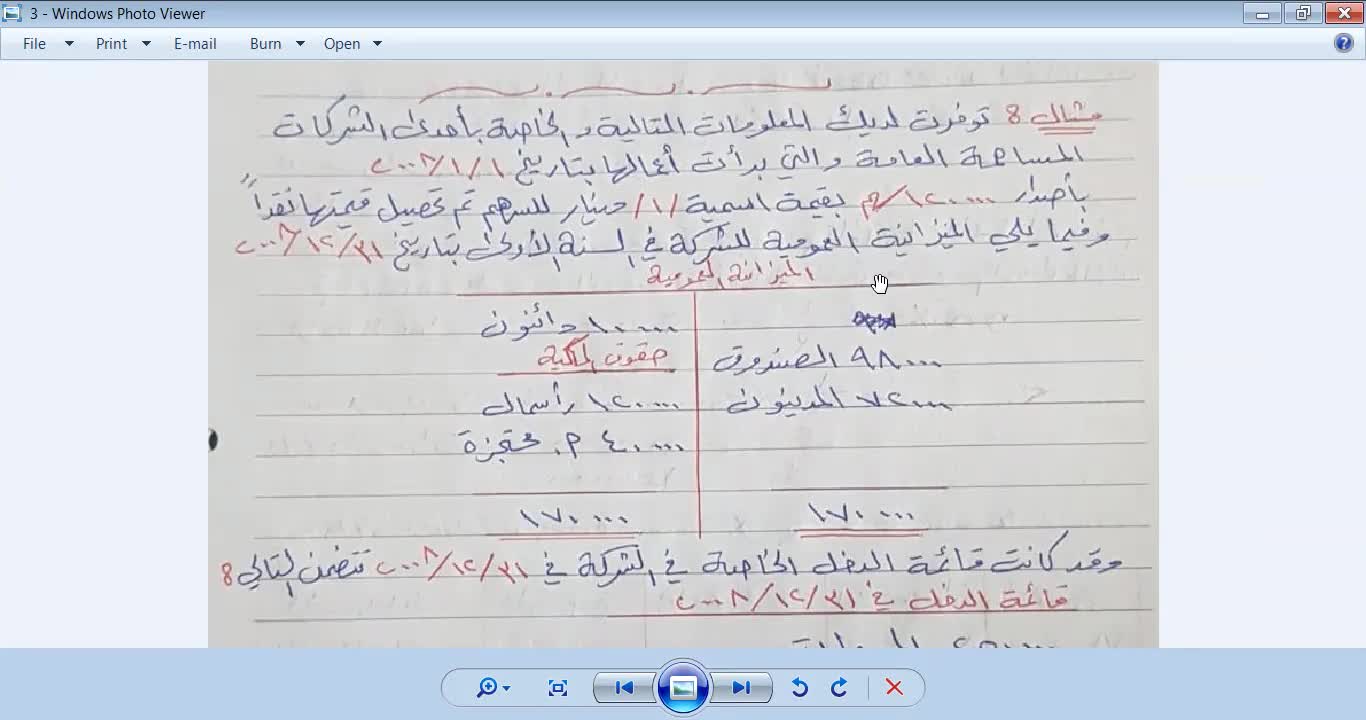 3 - Windows Photo Viewer
File Print E-mail Burn Open
مثال 8 توفرت لديك المعلومات التالية والخاصة بأحدى الشركات
المساهمة العامة والتي بدأت أعمالها بتاريخ ٢٠٠٨/١/١
بأصدار ١٢٠٠٠٠ بقيمة اسمية /١/ دينار للسهم تم تحصيل قيمتها نقداً
وفيما يلي الميزانية العمومية للشركة في السنة الأولى بتاريخ ٢٠٠٨/١٢/٣١
الميزانية العمومية
١٠٠٠٠ دائنون
٩٨٠٠٠ الصندوق حقوق الملكية
٧٢٠٠٠ المدينون ١٢٠٠٠٠ رأسمال
٤٠٠٠٠ م. محتجزة
١٧٠٠٠٠ ١٧٠٠٠٠
وقد كانت قائمة الدخل الخاصة في الشركة في ٢٠٠٨/١٢/٣١ تتضمن التالي 8
قائمة الدخل في ٢٠٠٨/١٢/٣١